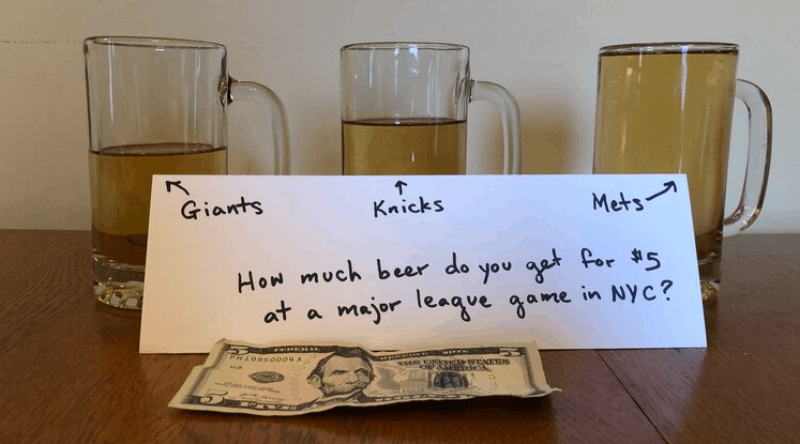 Giants Knicks Mets
How much beer do you get for $5
at a major league game in NYC?
5 FEDERAL RESERVE NOTE 5
PH10950004A
THE UNITED STATES
OF AMERICA
H8
FIVE